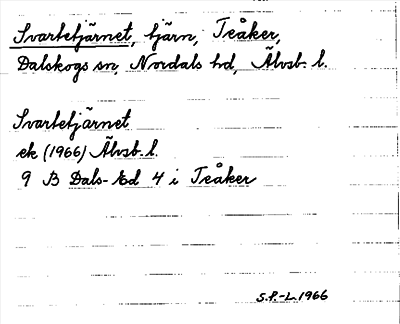 Svartetjärnet, tjärn, Teåker,
Dalskogs sn, Nordals hd, Älvsb. l.
Svartetjärnet
ek (1966) Älvsb. l.
9 B Dals-Ed 4 i Teåker
S.F.-L. 1966